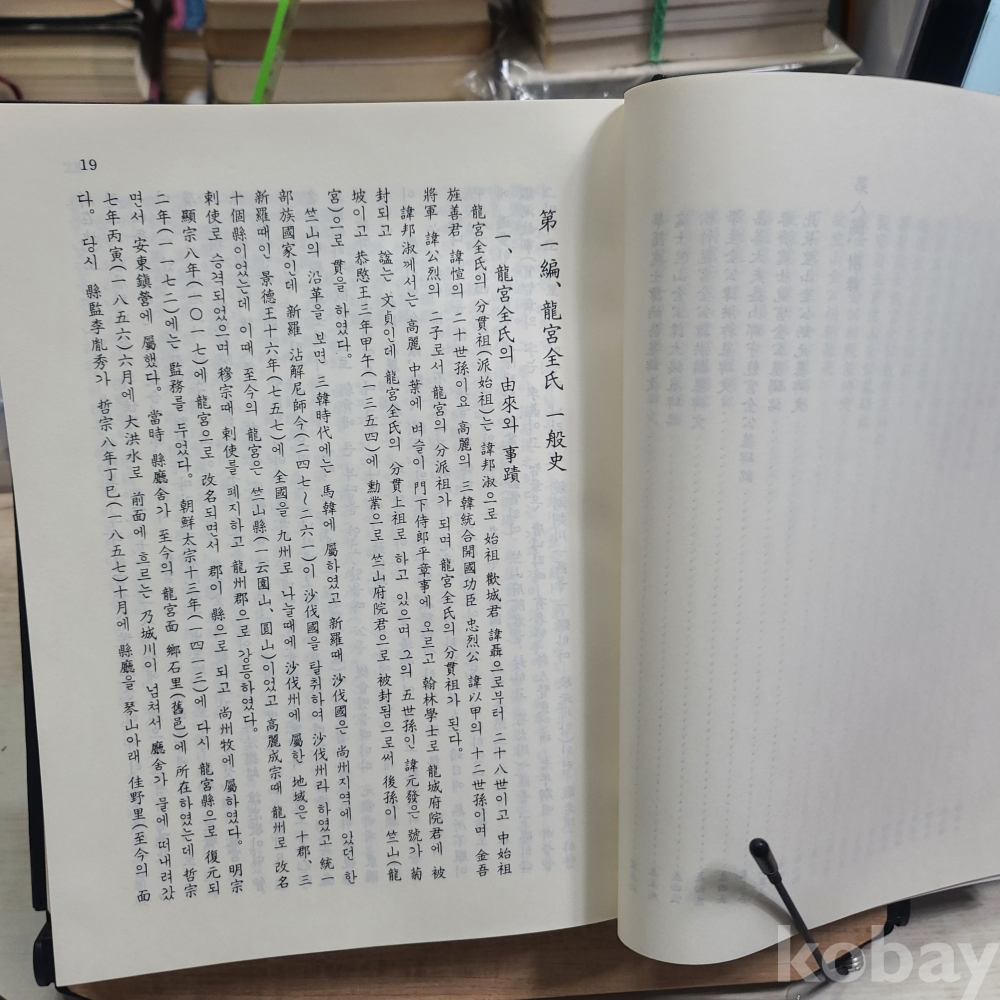 第一編、龍宮全氏 一般史
一、龍宮全氏의 由來와 事蹟
龍宮全氏의 分貫祖(派始祖)는 諱邦淑으로 始祖 歡城君 諱聶으로부터 二十八世이고 中始祖
旌善君 諱愃의 二十世孫이요 高麗의 三韓統合開國功臣 忠烈公 諱以甲의 十二世孫이며 金吾
將軍 諱公烈의 二子로서 龍宮의 分派祖가 되며 龍宮全氏의 分貫祖가 된다。
諱邦淑께서는 高麗 中葉에 벼슬이 門下侍郎平章事에 오르고 翰林學士로 龍城府院君에 被
封되고 諡는 文貞인데 龍宮全氏의 分貫上祖로 하고 있으며 그의 五世孫인 諱元發은 號가 菊
坡이고 恭愍王三年甲午(一三五四)에 勳業으로 竺山府院君으로 被封됨으로써 後孫이 竺山(龍
宮)으로 貫을 하였다。
竺山의 沿革을 보면 三韓時代에는 馬韓에 屬하였고 新羅때 沙伐國은 尚州지역에 있던 한
部族國家인데 新羅 沾解尼師今(二四七～二六一)이 沙伐國을 탈취하여 沙伐州라 하였고 統一
新羅때인 景德王十六年(七五七)에 全國을 九州로 나눌때에 沙伐州에 屬한 地域은 十郡、三
十個縣이었는데 이때 至今의 龍宮은 竺山縣(一云園山、圓山)이었고 高麗成宗때 龍州로 改名
刺使로 승격되었으며 穆宗때 刺使를 폐지하고 龍州郡으로 강등하였다。
顯宗八年(一○一七)에 龍宮으로 改名되면서 郡이 縣으로 되고 尚州牧에 屬하였다。 明宗
二年(一一七二)에는 監務를 두었다。 朝鮮太宗十三年(一四一三)에 다시 龍宮縣으로 復元되
면서 安東鎭營에 屬했다。當時 縣廳舍가 至今의 龍宮面 鄕石里(舊邑)에 所在하였는데 哲宗
七年丙寅(一八五六)六月에 大洪水로 前面에 흐르는 乃城川이 넘쳐서 廳舍가 물에 떠내려갔
다。 당시 縣監李胤秀가 哲宗八年丁巳(一八五七)十月에 縣廳을 琴山아래 佳野里(至今의 面
19
kobay